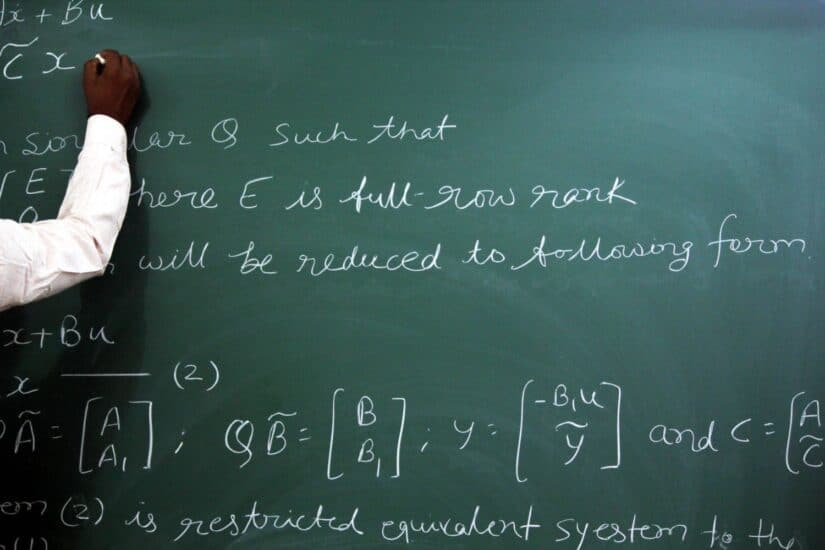 ẋ + Bu
C̃ x
Q such that
[E
here E is full-row rank
will be reduced to following form.
x+Bu
x —— (2)
Ã = [A A₁] ; Q B̃ = [B B₁] ; y = [-B₁u ỹ] and C = [A C̃
(2) is restricted equivalent syestem to the
(1)